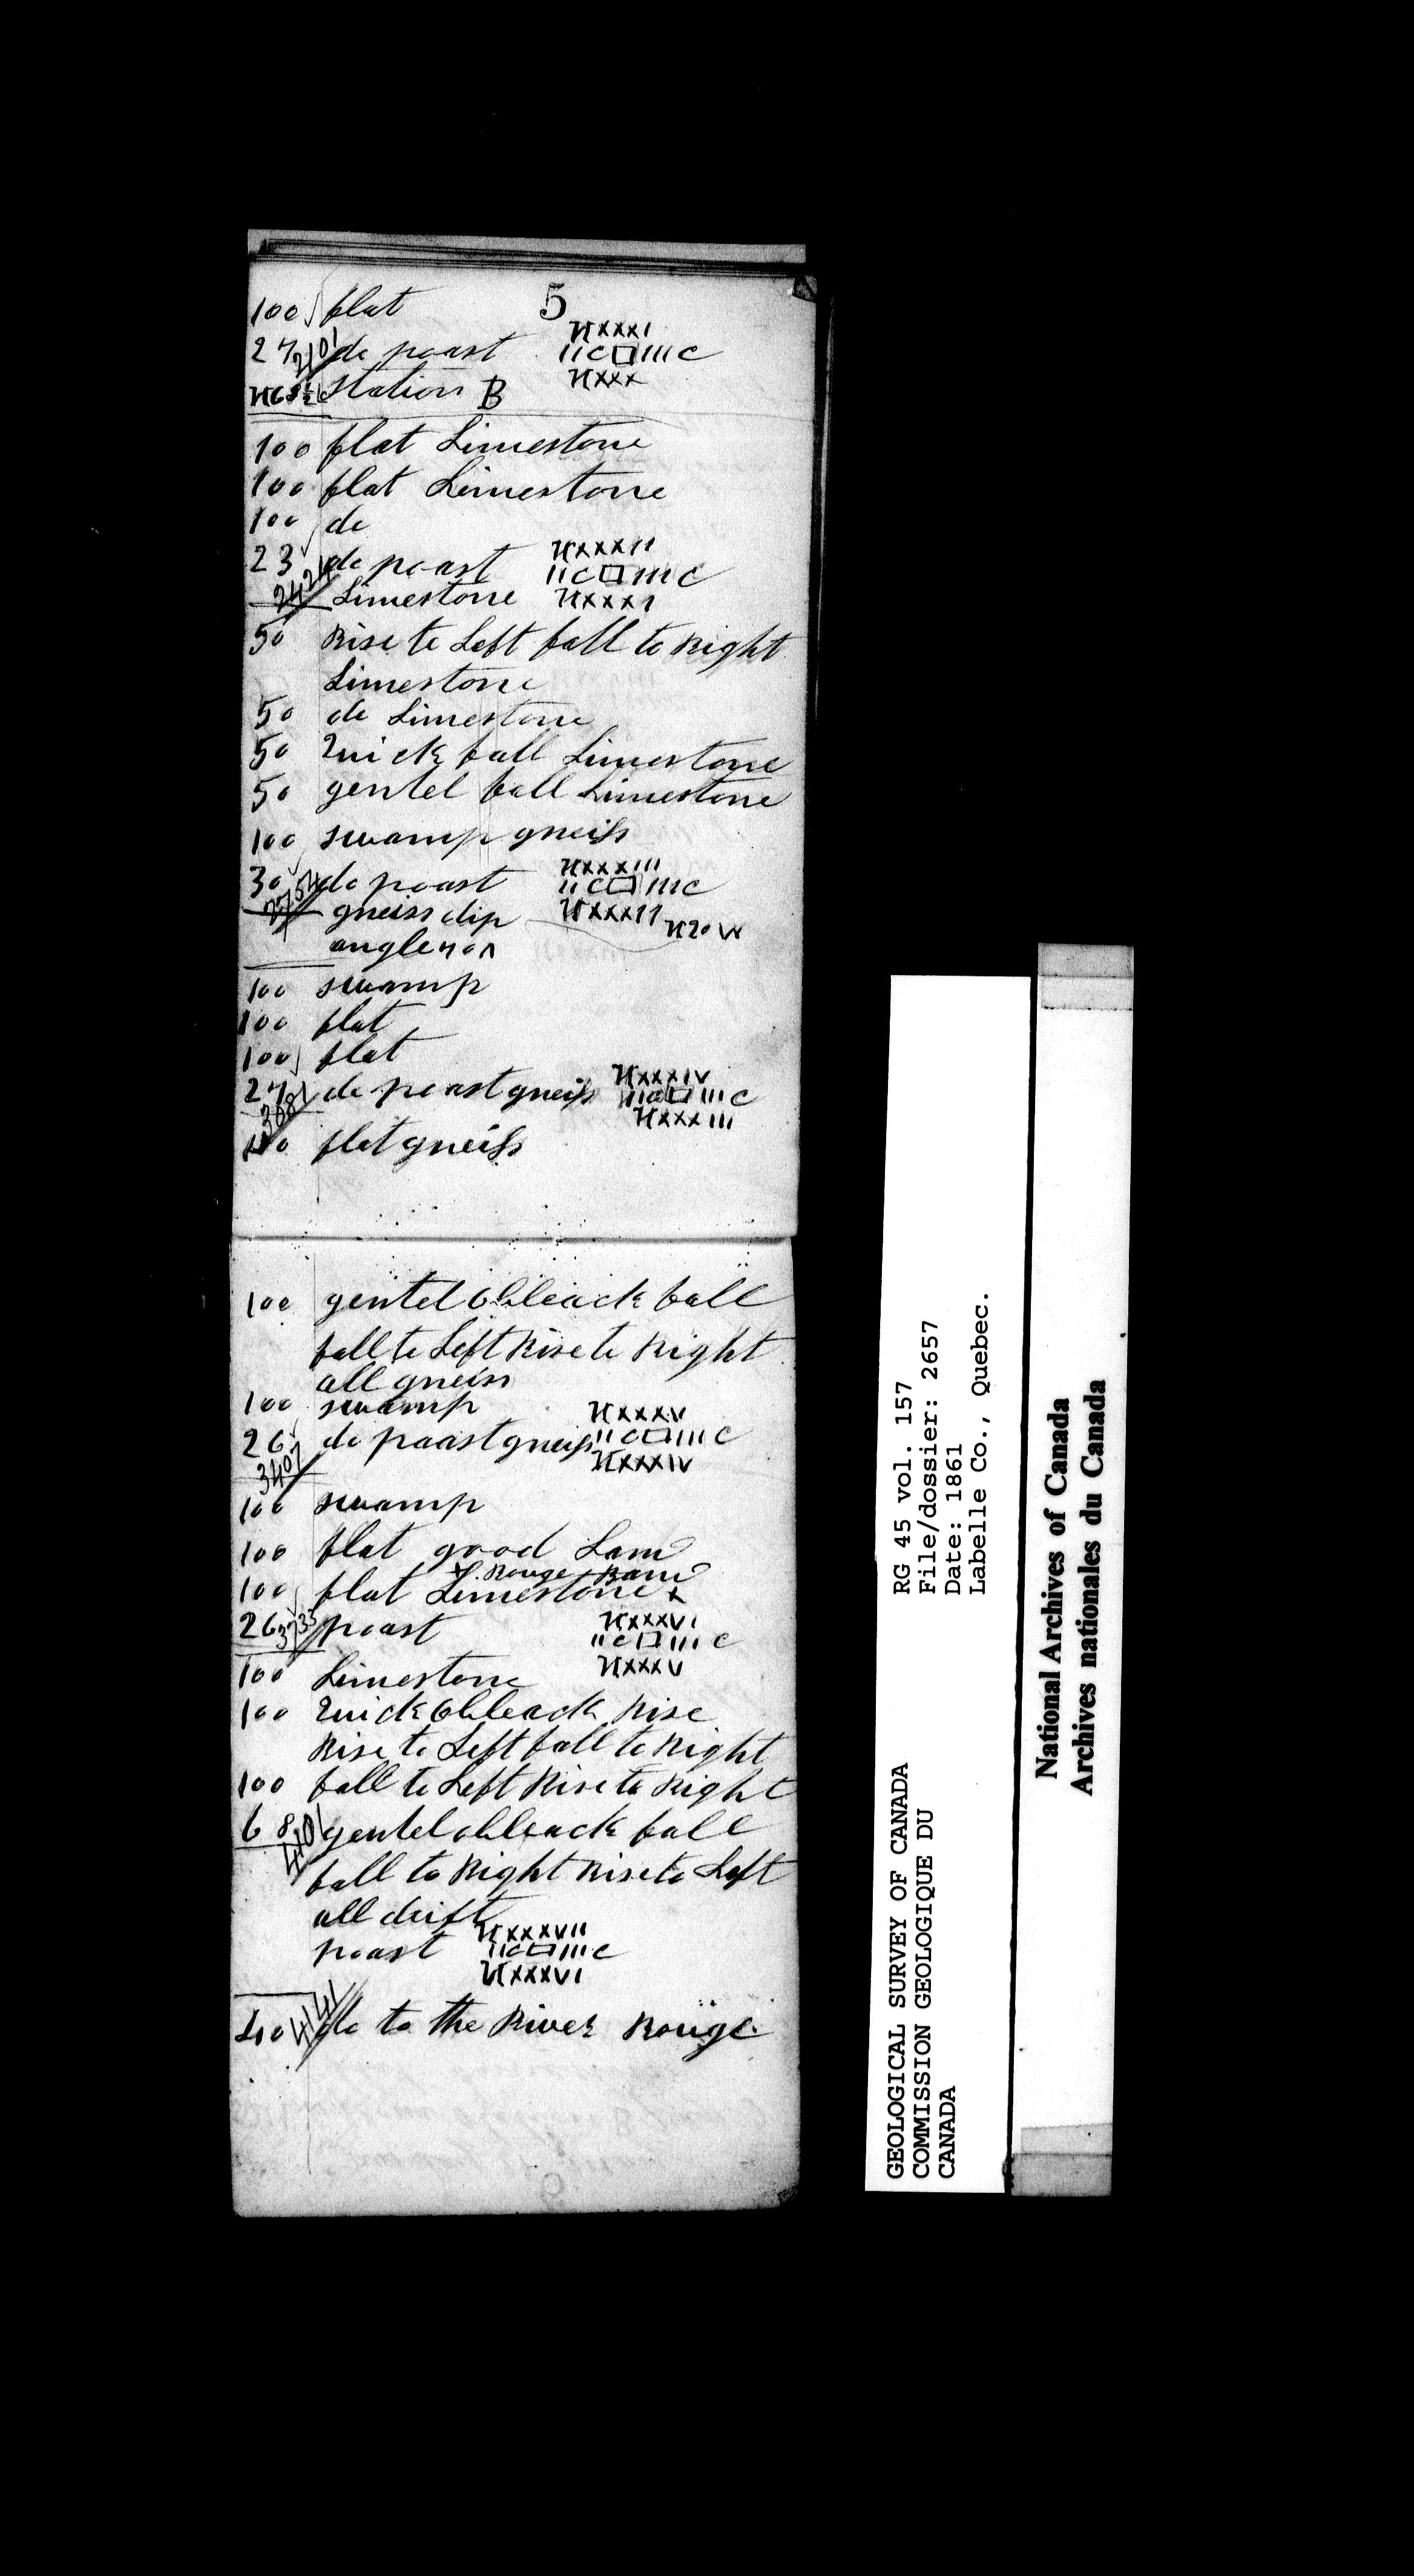 5
100 flat
27 2101 do poast NXXXI
IIC□IIIC
NXXX
station B
100 flat Limestone
100 flat Limestone
100 do
23 do poast NXXXII
IIC□IIIC
2424 Limestone NXXXI
50 Rise to Left fall to Right
Limestone
50 do Limestone
50 Quick fall Limestone
50 gentel fall Limestone
100 swamp gneiss
30 do poast NXXXIII
IIC□IIIC
2754 gneiss dip NXXXII N20W
angle
100 swamp
100 flat
100 flat
27 do poast gneiss NXXXIV
IIC□IIIC
3081 NXXXIII
100 flat gneiss
100 gentel obleack fall
fall to Left Rise to Right
all gneiss
100 swamp NXXXV
26 do poast gneiss IIC□IIIC
3407 NXXXIV
100 swamp
100 flat good Land
R. Rouge Band
100 flat Limestone x
26 3733 poast NXXXVI
IIC□IIIC
100 Limestone NXXXV
100 Quick obleack Rise
Rise to Left fall to Right
100 fall to Left Rise to Right
68 4101 gentel obleack fall
fall to Right Rise to Left
all drift
poast NXXXVII
IIC□IIIC
NXXXVI
40 4141 do to the River Rouge
GEOLOGICAL SURVEY OF CANADA
COMMISSION GEOLOGIQUE DU
CANADA
RG 45 vol. 157
File/dossier: 2657
Date: 1861
Labelle Co., Quebec.
National Archives of Canada
Archives nationales du Canada